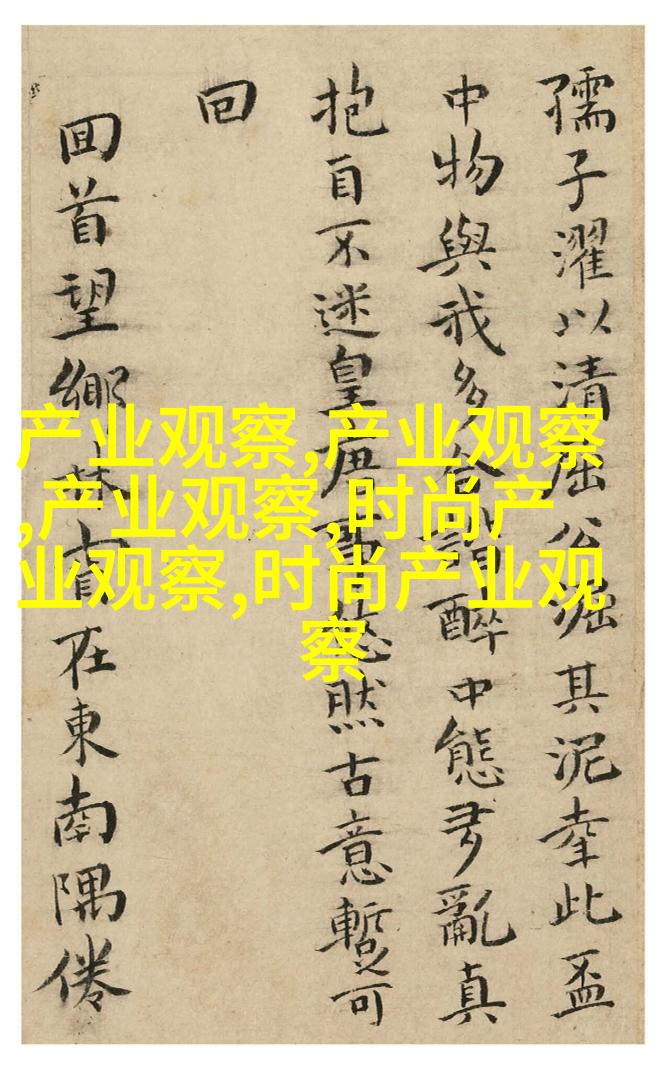 孺子濯以清屈公淈其泥幸此盃
中物與我多醉中態亂真
抱自不迷皇唐然古意暫可
回
回首望鄉林在東南隅倦
产业观察,产业观察
,产业观察,时尚产
业观察,时尚产业观
察